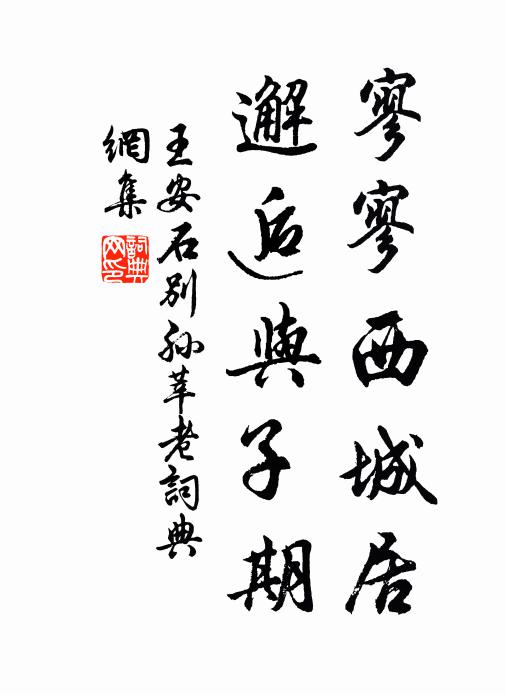 寥寥西城居
邂逅與子期
王安石別孫莘老詞典
網集
詞典
网印